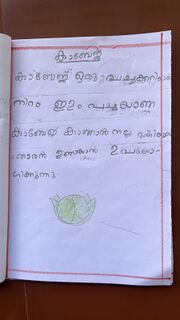 കാബേജ്
കാബേജ് ഒരു പച്ചക്കറിയാണ്
നിറം ഇളം പച്ചയാണ്
കാബേജ് കാണാൻ നല്ല
തോരൻ ഉണ്ടാക്കാൻ ഉപയോ
ഗിക്കുന്നു